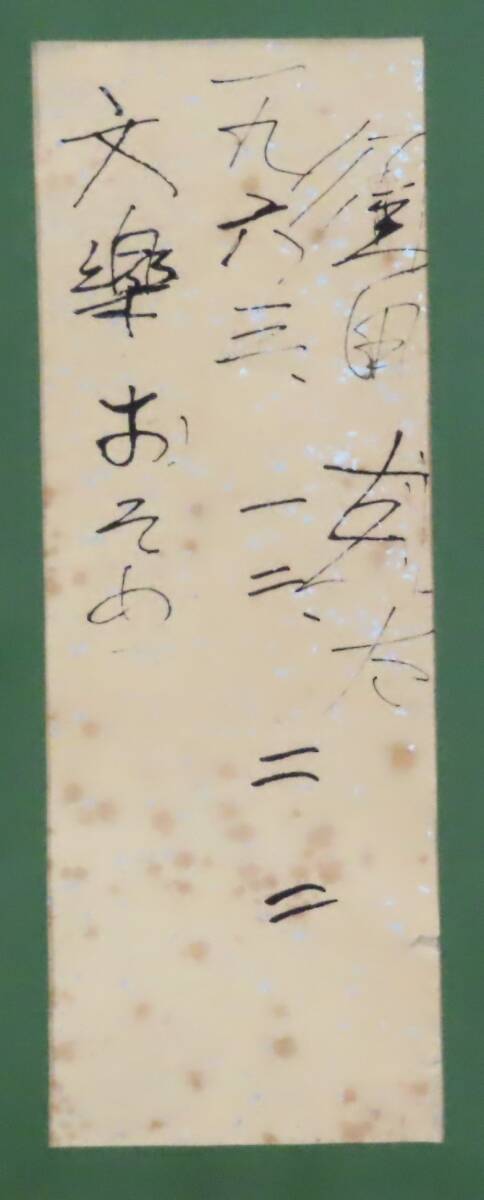 須田剋太
一九六三、一二、二二
文樂おそめ